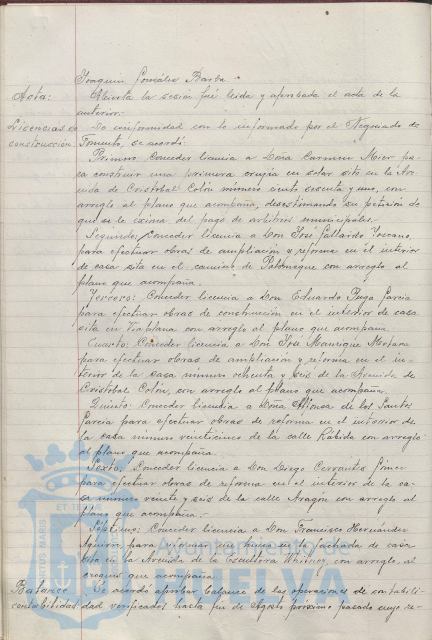 Joaquin González Barba.
Acta: Abierta la sesión fué leida y aprobada el acta de la
anterior.
Licencias de De conformidad con lo informado por el Negociado de
construcción Fomento, se acordó:
Primero: Conceder licencia a Doña Carmen Mier pa-
ra construir una primera crugia en solar sito en la Ave-
nida de Cristobal Colón número ciento sesenta y uno, con
arreglo al plano que acompaña, desestimando su petición de
que se le exima del pago de arbitrios municipales.
Segundo: Conceder licencia a Don José Gallardo Toscano,
para efectuar obras de ampliación y reforma en el interior
de casa sita en el camino de Palomeque con arreglo al
plano que acompaña.
Tercero: Conceder licencia a Don Eduardo Puga Garcia
para efectuar obras de construcción en el interior de casa
sita en Viaplana con arreglo al plano que acompaña.
Cuarto: Conceder licencia a Don José Manrique
para efectuar obras de ampliación y reforma en el in-
terior de la casa número ochenta y seis de la Avenida de
Cristóbal Colón, con arreglo al plano que acompaña.
Quinto: Conceder licencia a Doña Alfonsa de los Santos
Garcia para efectuar obras de reforma en el interior de
la casa número veinticinco de la calle Rábida con arreglo
al plano que acompaña.
Sexto: Conceder licencia a Don Diego Cervantes
para efectuar obras de reforma en el interior de la ca-
sa número veinte y seis de la calle Aragón con arreglo al
plano que acompaña.
Séptimo: Conceder licencia a Don Francisco Hernández
Aguirre, para reformar un hueco en la fachada de casa
sita en la Avenida de la Escultora Whitney, con arreglo al
croquis que acompaña.
Balance Se acordó aprobar balance de las operaciones de contabili-
contabilidad. dad verificadas hasta fin de Agosto próximo pasado cuyo re-
Ayuntamiento de
HUELVA